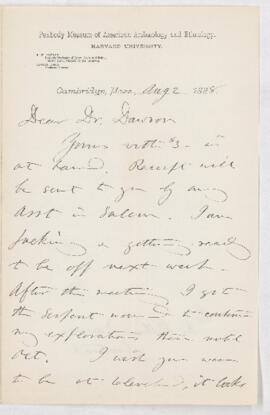 Peabody Museum of American Archæology and Ethnology,
HARVARD UNIVERSITY.
Cambridge, Mass., Aug 2 1888
Dear Dr. Dawson
Yours with $3– is
at hand. Receipt will
be sent to you by my
Asst in Salem. I am
packing & getting ready
to be off next week.
After the meeting I go to
the serpent mound to continue
my explorations there until
Oct. I wish you were
to be at Cleveland, it looks